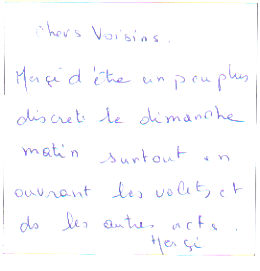 Chers Voisins.
Merçi d'être un peu plus
discret le dimanche
matin surtout en
ouvrant les volets, et
ds les autres acts.
Merçi